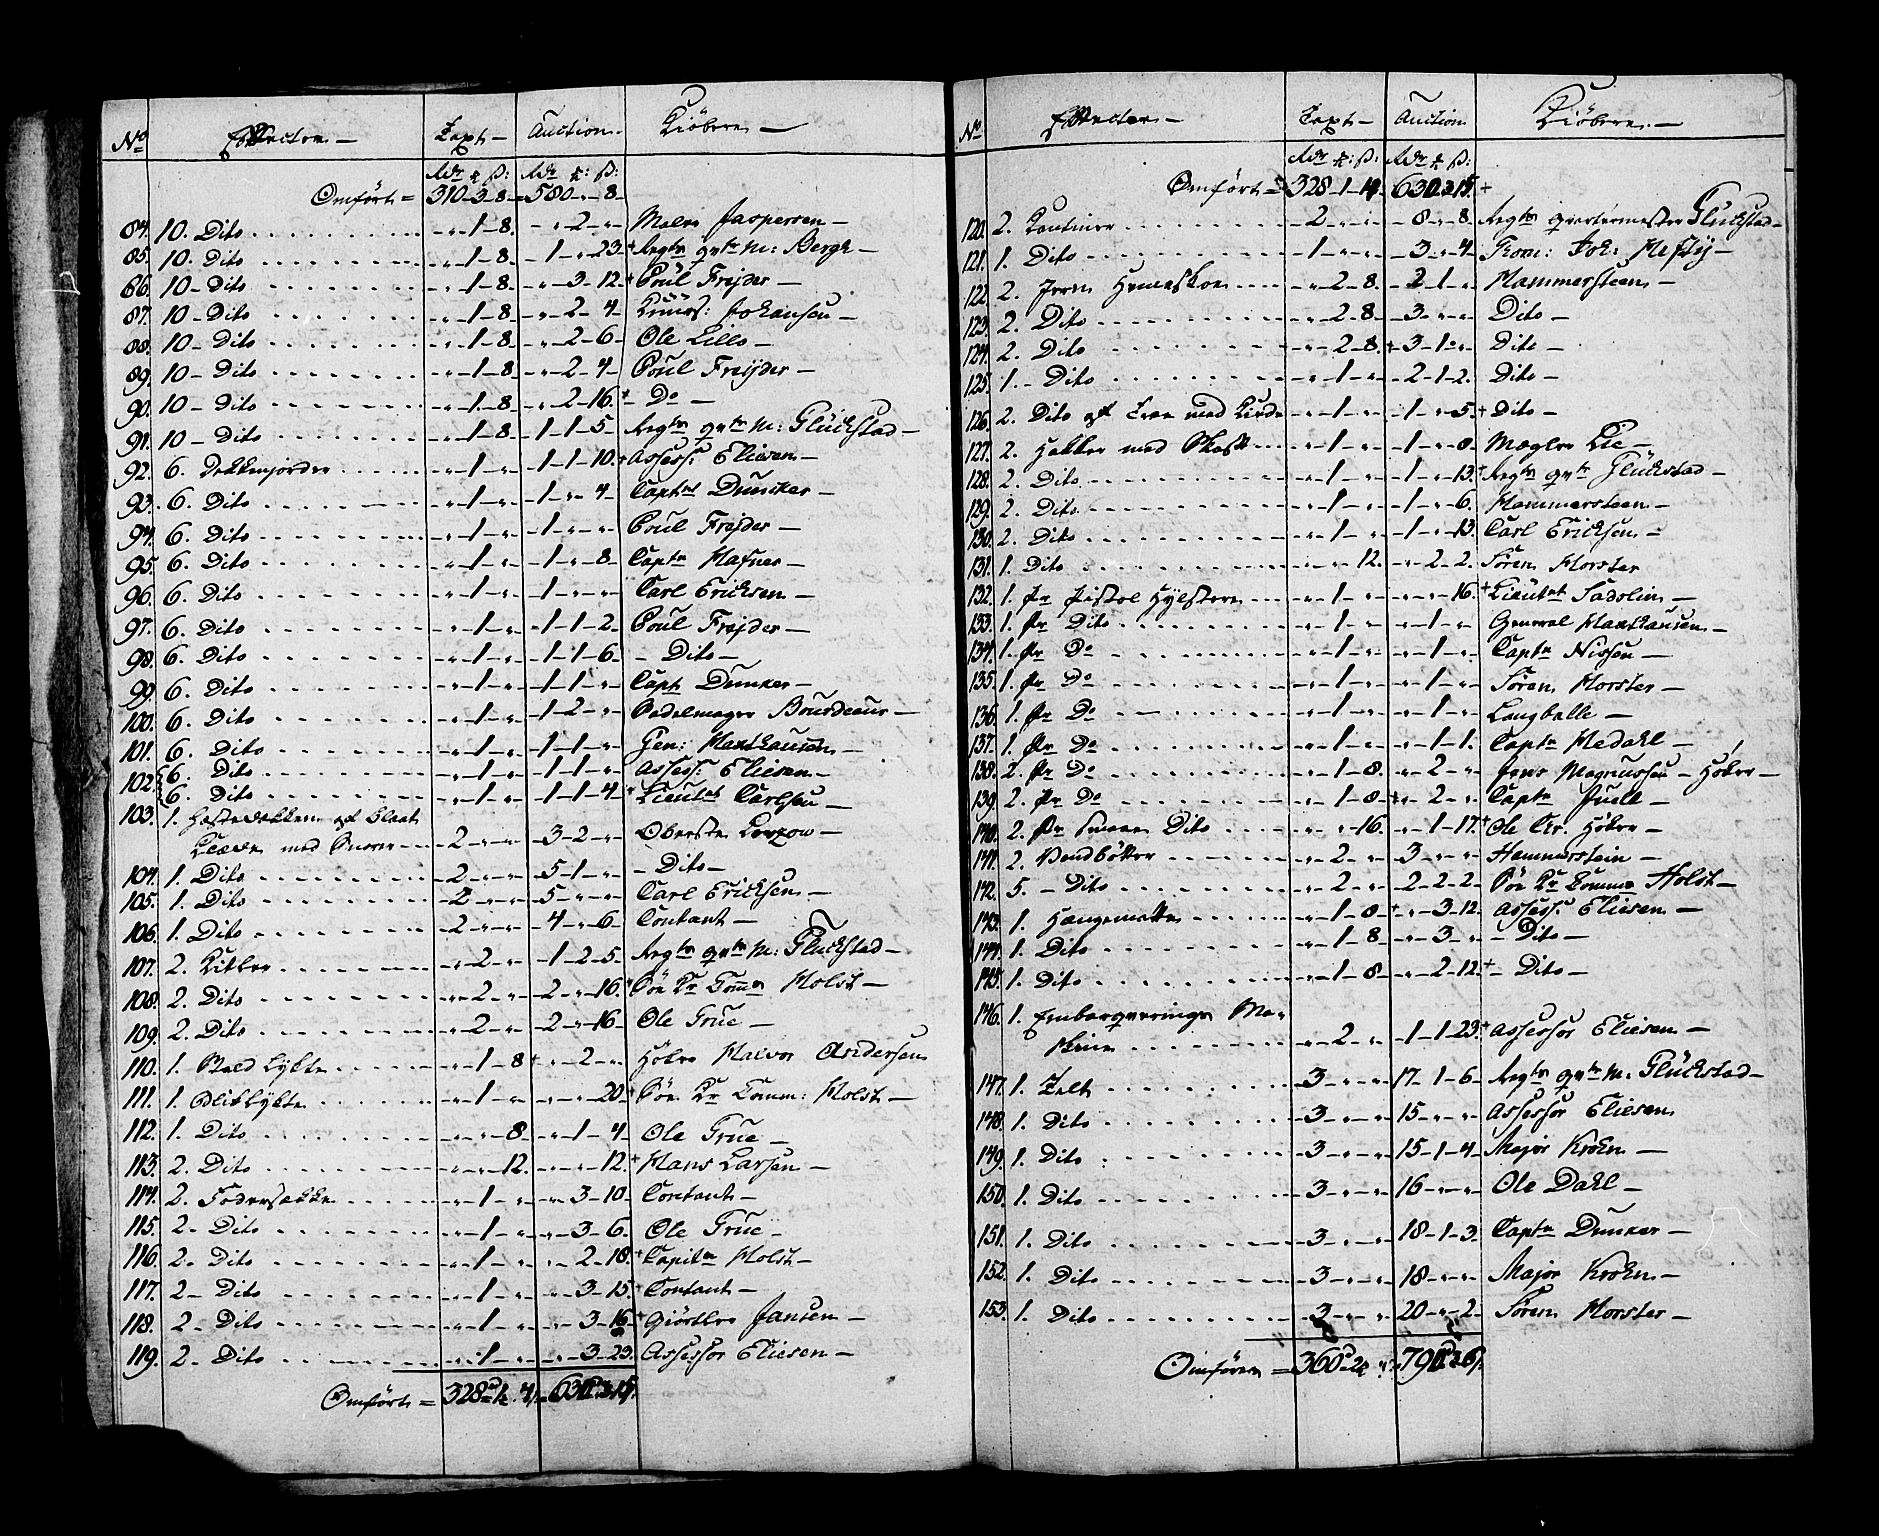 No Effecter — Taxt — Auction — Kiöbere —
Rdr ort ß: Rdr ort: ß:
Omfört = 310-3-8 = 580-"-8-
84. 10. Dito "-1-8. -"-2-"- Maler Jaspersen —
85. 10. Dito "-1-8. -1-"-23 Regts qvtr M: Bergh —
86. 10- Dito "-1-8. -"-3-12. Poul Frejder —
87. 10- Dito "-1-8 "-2-4 Johansen —
88. 10- Dito "-1-8- "-2-6. Ole Lillo —
89. 10- Dito "-1-8 "-2-4. Poul Freijder —
90. 10- Dito "-1-8. "-2-16. Do —
91. 10- Dito "-1-8. 1-1-5. Regts qvtr M: Glückstad —
92. 6. Dekkengjorder "-1-" 1-1-10. Assess: Eliesen —
93. 6. Dito "-1-" 1-"-4. Captnt Duncker —
94. 6. Dito "-1-" 1-"-" Poul Frejder —
95. 6. Dito "-1-" 1-"-8. Captn Hafner —
96. 6. Dito "-1-" 1-1-" Carl Ericksen —
97. 6. Dito "-1-" 1-1-2. Poul Frejder —
98. 6. Dito "-1-" 1-1-6. Dito —
99. 6. Dito "-1-" 1-1-" Capt Dunker —
100. 6. Dito "-1-" 1-2-" Sadelmager Bourdeaux —
101. 6. Dito "-1-" 1-1-" Gen: Manthausen —
102. 6. Dito "-1-" 1-1-" Assess: Eliesen —
6. Dito "-1-" 1-1-4. Lieutnt Carlsen —
103. 1. Hestedækken af blaat
Klæde med Snorer 2-"-" 3-2-" Oberste Lowzow —
104. 1. Dito 2-"-" 5-1-" Dito —
105. 1. Dito 2-"-" 5-"-" Carl Ericksen —
106. 1. Dito 2-"-" 4-"-6 Contant —
107. 2. Kitler "-2-" 1-2-5. Regts qvtr M: Glückstad —
108. 2. Dito "-2-" 2-"-16. Söe Kr Comm Holst —
109. 2. Dito "-2-" 2-"-16. Ole True —
110. 1. Stald Lygte "-1-8 "-2-" Höker Halvor Andersen
111. 1. Bliklygte "-1-" "-"-20. Söe Kr Comm: Holst —
112. 1. Dito "-"-8. "-1-4. Ole True —
113. 2. Dito "-"-12. "-"-12. Hans Larsen —
114. 2. Fodersække "-1-" "-3-10. Contant —
115. 2- Dito "-1-" "-3-6. Ole True —
116. 2- Dito "-1-" "-2-18. Capitn Holst —
117. 2- Dito "-1-" "-3-15. Contant —
118. 2- Dito "-1-" "-3-16. Giörtler Jansen —
119. 2- Dito "-1-" "-3-23. Assessor Eliesen —
Omfört = 328
No Effecter — Taxt — Auction Kiöbere —
Rdr ort: ß: Rdr ort ß:
Omfört = 328-1-4.
120. 2. Kantiner 2-"-" 8-"-8. Regts qvartermester Glückstad —
121. 1. Dito 1-"-" 3-"-4. From: Joh: Mefty —
122. 2. Jern Hæmskoe "-2-8. 2-1-" Hammersteen —
123. 2. Dito "-2-8. 3-"-" Dito —
124. 2. Dito "-2-8. 3-1-" Dito —
125. 1. Dito "-1-" 2-1-2. Dito —
126. 2. Dito af Træe med Kiede "-1-" 1-"-5. Dito —
127. 2. Hakker med Skaft "-1-" 1-"-8. Mægler Lie —
128. 2. Dito "-1-" 1-"-13. Regts qvtr Glückstad —
129. 2. Dito "-1-" 1-"-6. Hammersteen —
130. 2. Dito "-1-" 1-"-13. Carl Ericksen —
131. 1. Dito "-"-12. "-2-2. Sören Horster
132. 1. Pr Pistol Hylstere "-1-" "-"-16. Lieutnt Sadolin —
133. 1. Pr Dito "-1-" "-1-" General Manthausen —
134. 1. Pr Do "-1-" "-1-" Captn Nissen —
135. 1. Pr Do "-1-" "-1-" Sören Horster —
136. 1. Pr Do "-1-" "-1-" Langballe —
137. 1. Pr Do "-1-" "-1-1. Captn Medahl —
138. 2. Pr Do "-1-8. "-2-" Jens Magnussen — Höker —
139. 2. Pr Do "-1-8. "-2-" Captn Juell —
140. 2. Pr smaae Dito "-"-16. "-1-17. Ole Chr. Höker —
141. 2. Vandbötter "-2-" 3-"-" Hammerstein —
142. 5. - Dito "-2-" 2-2-2. Söe Kr Comm Holst —
143. 1. Hængematte "-1-8. "-3-12. Assess: Eliesen —
144. 1. Dito "-1-8. "-3-" Dito —
145. 1. Dito "-1-8. "-2-12. Dito —
146. 1. Embarqverings Ma-
skine "-2-" 1-1-23. Assessor Eliesen —
147. 1. Telt 3-"-" 17-1-6. Regts qvtr M: Glückstad —
148. 1. Dito 3-"-" 15-"-" Assessor Eliesen
149. 1. Dito 3-"-" 15-1-4. Major Krohn —
150. 1. Dito 3-"-" 16-"-" Ole Dahl —
151. 1. Dito 3-"-" 18-1-3. Captn Dunker —
152. 1. Dito 3-"-" 18-"-" Major Krohn —
153. 1. Dito 3-"-" 20-"-2. Sören Horster —
Omföres = 360